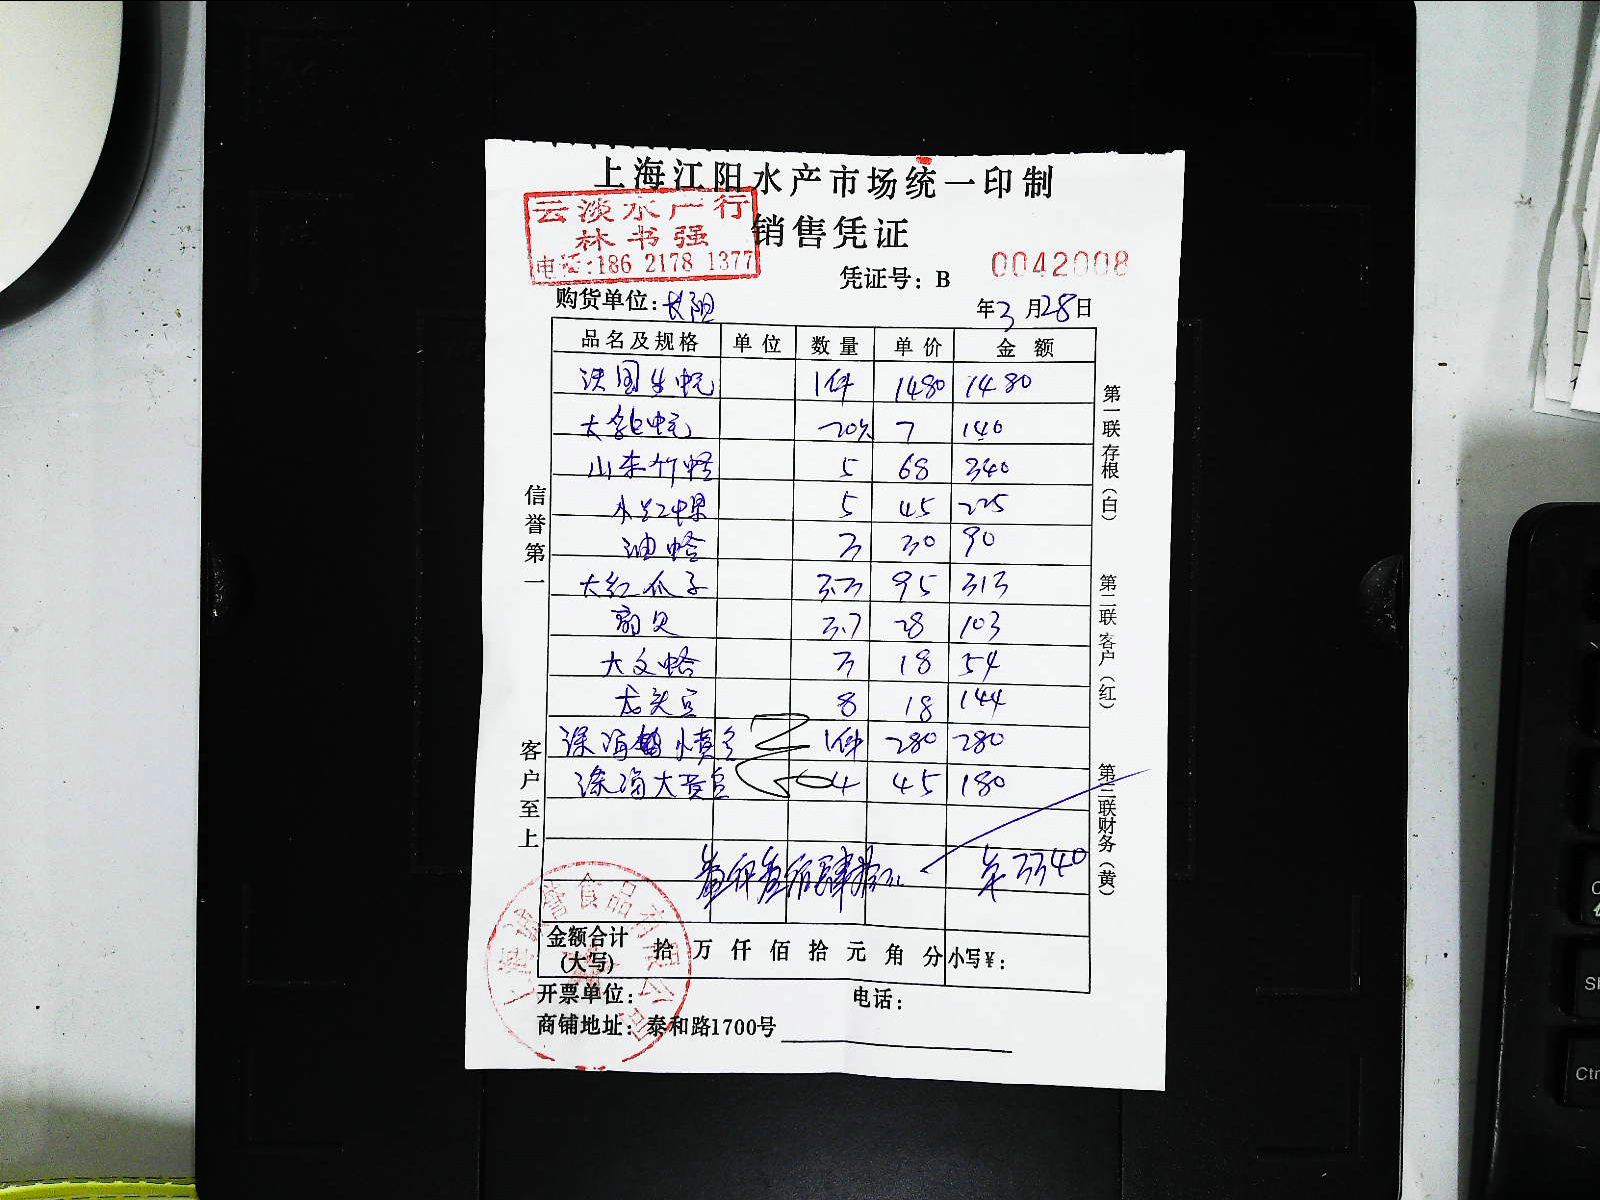 上海江阳水产市场统一印制
销售凭证
云淡水产行
林书强
电话:186 2178 1377
凭证号：B 0042008
购货单位：长阳 年3月28日
品名及规格 单位 数量 单价 金额
法国生蚝 1件 1480 1480
大鲍蚝 20只 7 140
山东竹蛏 5 68 340
水红螺 5 45 225
油蛤 3 30 90
大红瓜子 3.3 95 313
扇贝 3.7 28 103
大文蛤 3 18 54
龙头豆 8 18 144
深海小黄鱼 1件 280 280
深海大黄鱼 4 45 180
叁仟叁佰肆拾元 ¥3340
金额合计(大写) 拾 万 仟 佰 拾 元 角 分 小写¥：
开票单位： 电话：
商铺地址：泰和路1700号
信誉第一
客户至上
第一联存根(白)
第二联客户(红)
第三联财务(黄)
誉食品有限公司